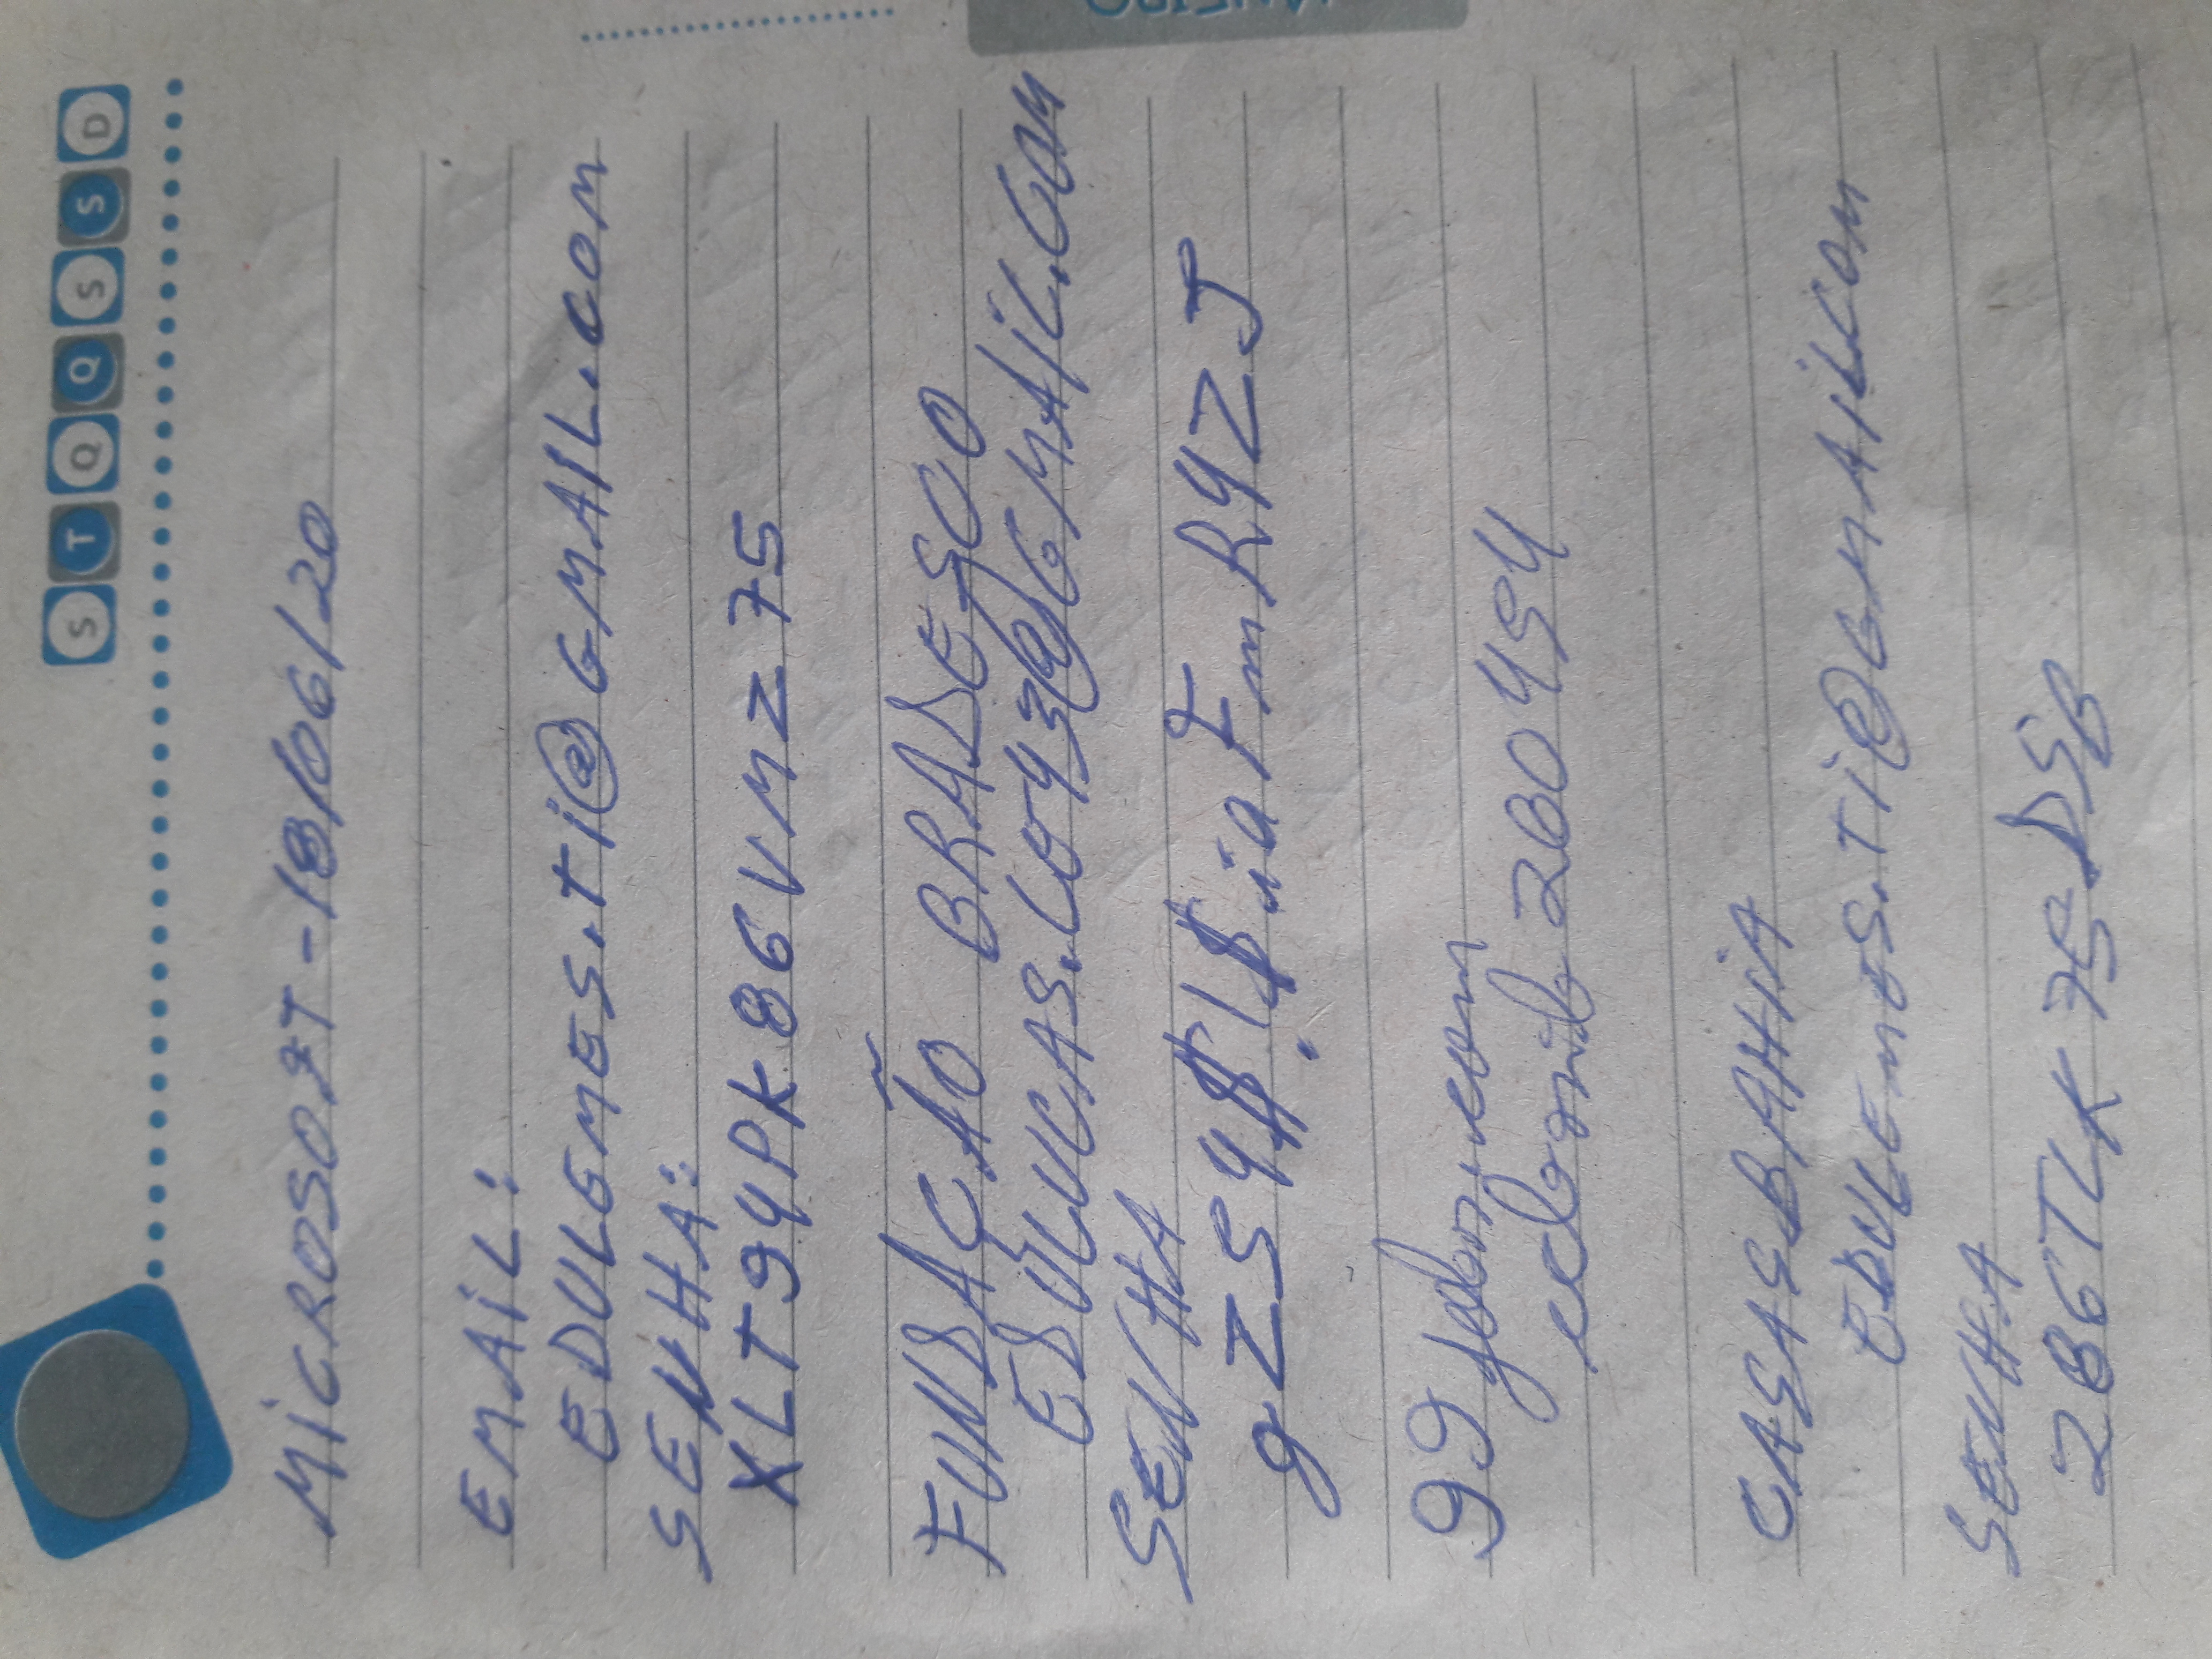 S T Q Q S S D
MiCROSOFT - 18/06/20
EMAiL:
EDULEMES.Ti@GMAIL.COM
SENHA:
XLT94PK86VMZ75
FUNDAÇÃO BRADESCO
EDULUCAS.LE43@GMAiL.COM
SENHA
gZS4$!$iaFmR4ZJ
99jobs.com
260494
CASASBAHiA
EDULEMES.Ti@GMAiL.COM
SENHA
286TLK75DSB